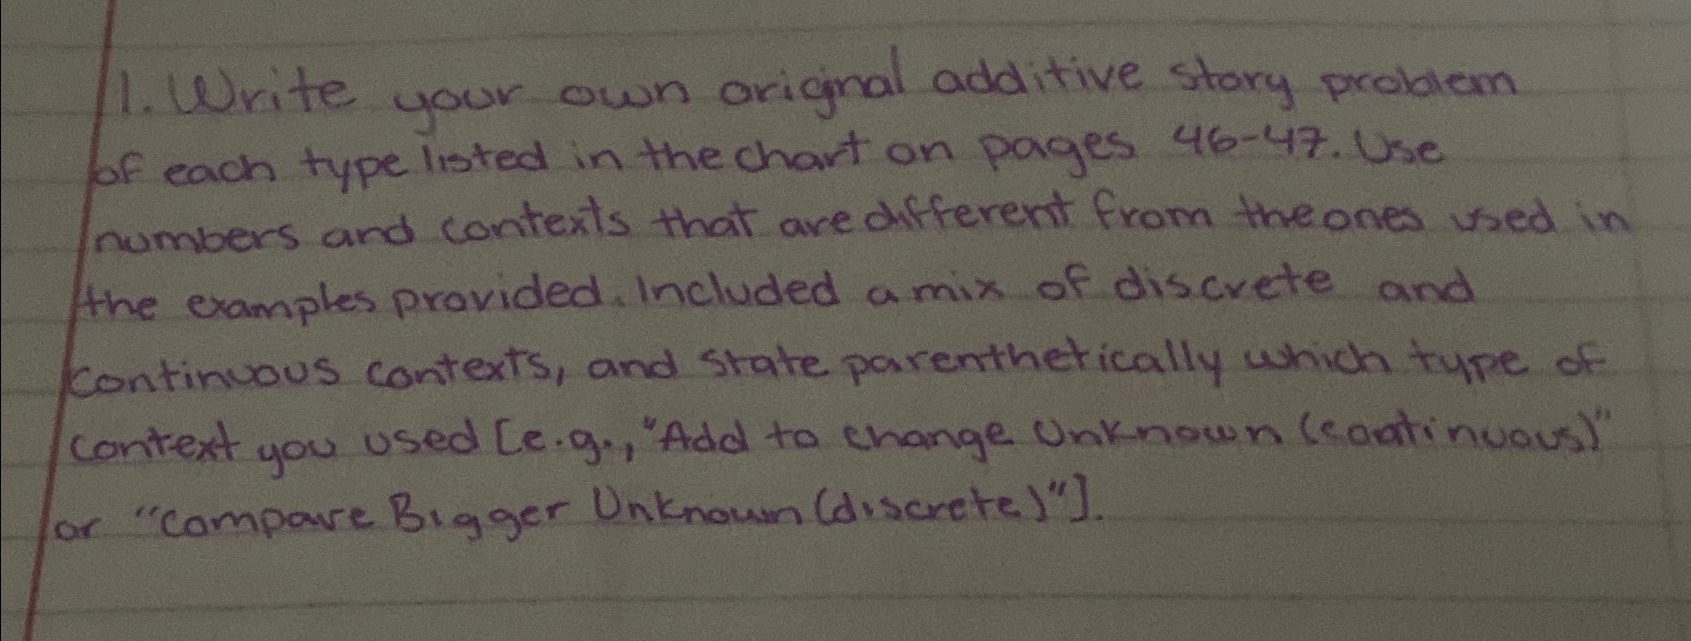 1. Write your own original additive story problem
of each type listed in the chart on pages 46-47. Use
numbers and contexts that are different from the ones used in
the examples provided. Included a mix of discrete and
continuous contexts, and state parenthetically which type of
context you used [e.g., "Add to change Unknown (continuous)"
or "Compare Bigger Unknown (discrete)"].